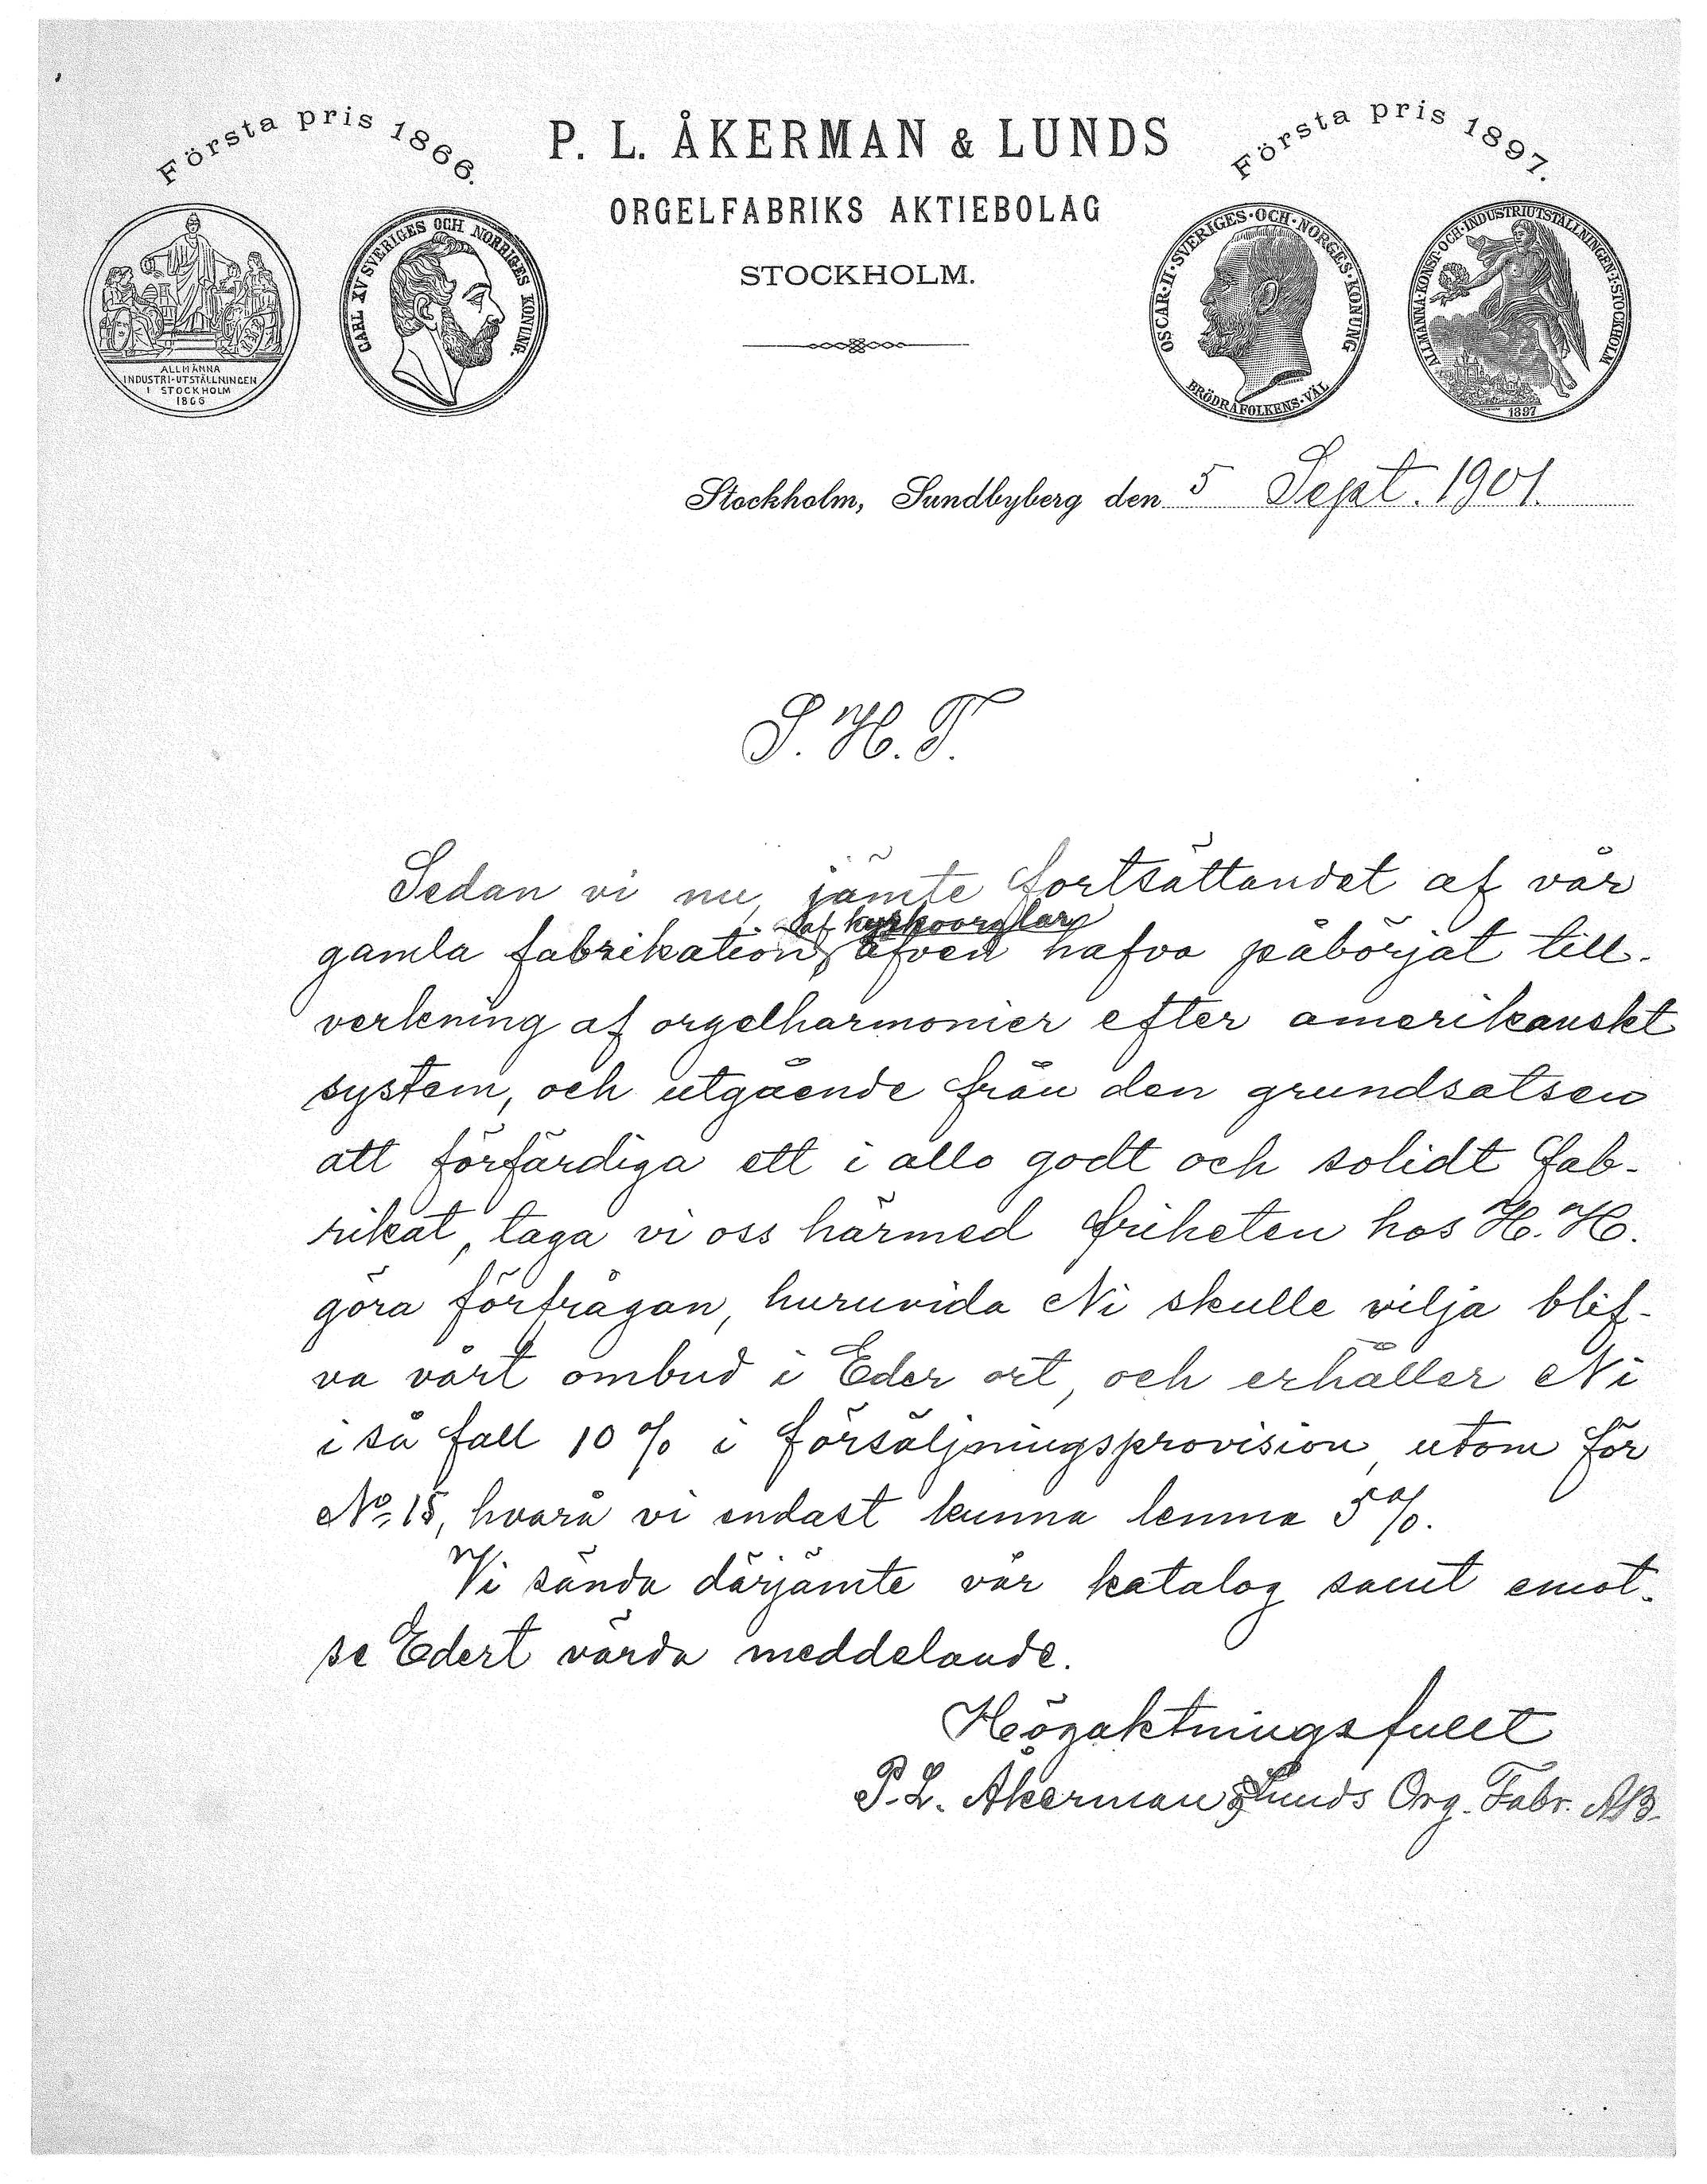 Första pris 1866.
P. L. ÅKERMAN & LUNDS
Första pris 1897.
ORGELFABRIKS AKTIEBOLAG
STOCKHOLM.
ALLMÄNNA
INDUSTRI-UTSTÄLLNINGEN
I STOCKHOLM
1866
CARL XV SVERIGES OCH NORRIGES KONUNG.
OSCAR·II·SVERIGES·OCH·NORGES·KONUNG
BRÖDRAFOLKENS·VÄL
ALLMÄNNA·KONST·OCH·INDUSTRIUTSTÄLLNINGEN·I·STOCKHOLM
1897
Stockholm, Sundbyberg den 5 Sept. 1901.
S. H. T.
Sedan vi nu, jämte fortsättandet af vår
af kyrkoorglar
gamla fabrikation, äfven hafva påbörjat till-
verkning af orgelharmonier efter amerikanskt
system, och utgående från den grundsatsen
att förfärdiga ett i allo godt och solidt fab-
rikat, taga vi oss härmed friheten hos H. H.
göra förfrågan, huruvida Ni skulle vilja blif-
va vårt ombud i Eder ort, och erhåller Ni
i så fall 10 % i försäljningsprovision, utom för
No. 15, hvarå vi endast kunna lemna 5 %.
Vi sända därjämte vår katalog samt emot-
se Edert värda meddelande.
Högaktningsfullt
P. L. Åkerman & Lunds Org. Fabr. AB.